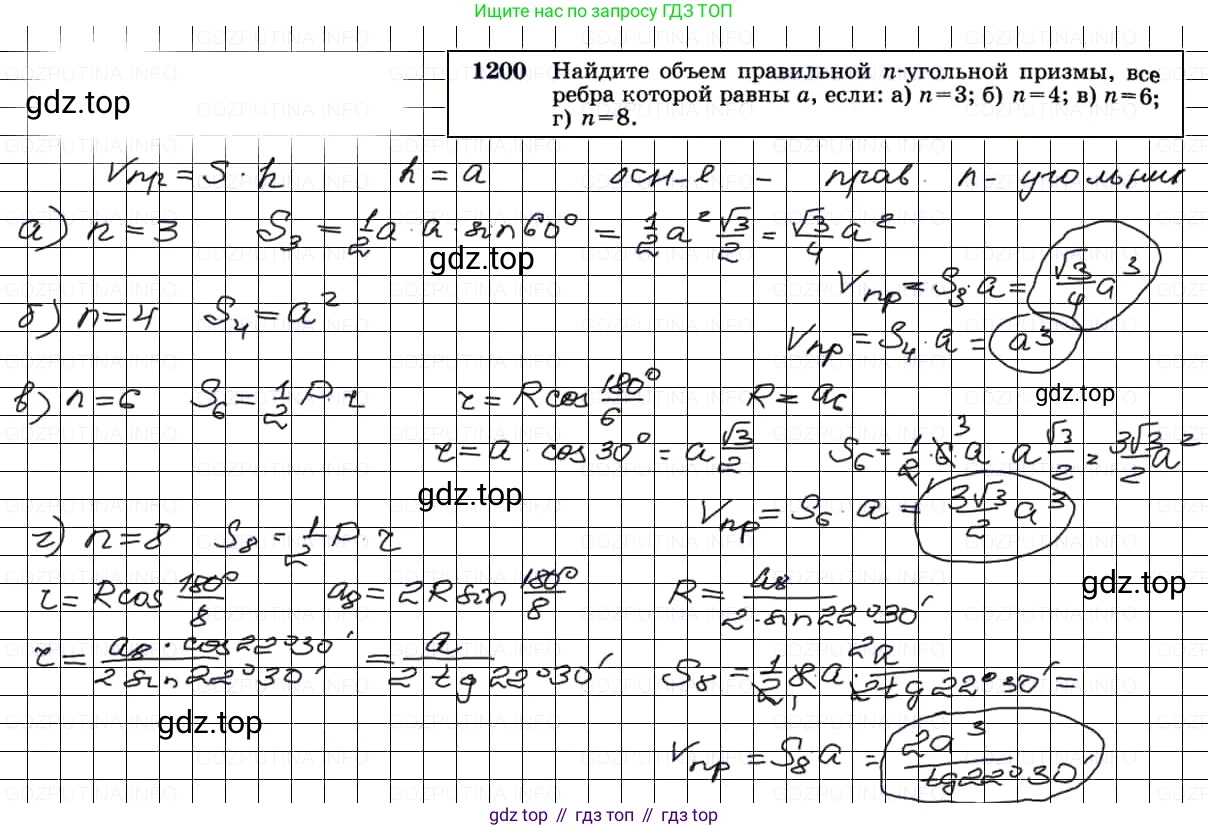 Ищите нас по запросу ГДЗ ТОП
1200 Найдите объем правильной n-угольной призмы, все
ребра которой равны a, если: а) n=3; б) n=4; в) n=6;
г) n=8.
gdz.top
Vпр = S · h h = a осн-е – прав. n-угольник
а) n = 3 S₃ = 1/2 a · a · sin 60° = 1/2 a² √3/2 = √3/4 a²
gdz.top
Vпр = S₃ · a = √3/4 a³
б) n = 4 S₄ = a²
Vпр = S₄ · a = a³
в) n = 6 S₆ = 1/2 P · r r = R cos 180°/6 R = a₆
gdz.top
r = a · cos 30° = a √3/2 S₆ = 1/2 · 6 3 a · a √3/2 = 3√3/2 a²
gdz.top
Vпр = S₆ · a = 3√3/2 a³
г) n = 8 S₈ = 1/2 P · r
gdz.top
r = R cos 180°/8 a₈ = 2R sin 180°/8 R = a₈/2 · sin 22°30′
r = a₈ · cos 22°30′/2 sin 22°30′ = a/2 tg 22°30′ S₈ = 1/2 · 8 · a · 2a/2 tg 22°30′ =
gdz.top
Vпр = S₈ · a = 2a³/tg 22°30′
gdz top // гдз топ // gdz.top
GDZPUTINA.INFO